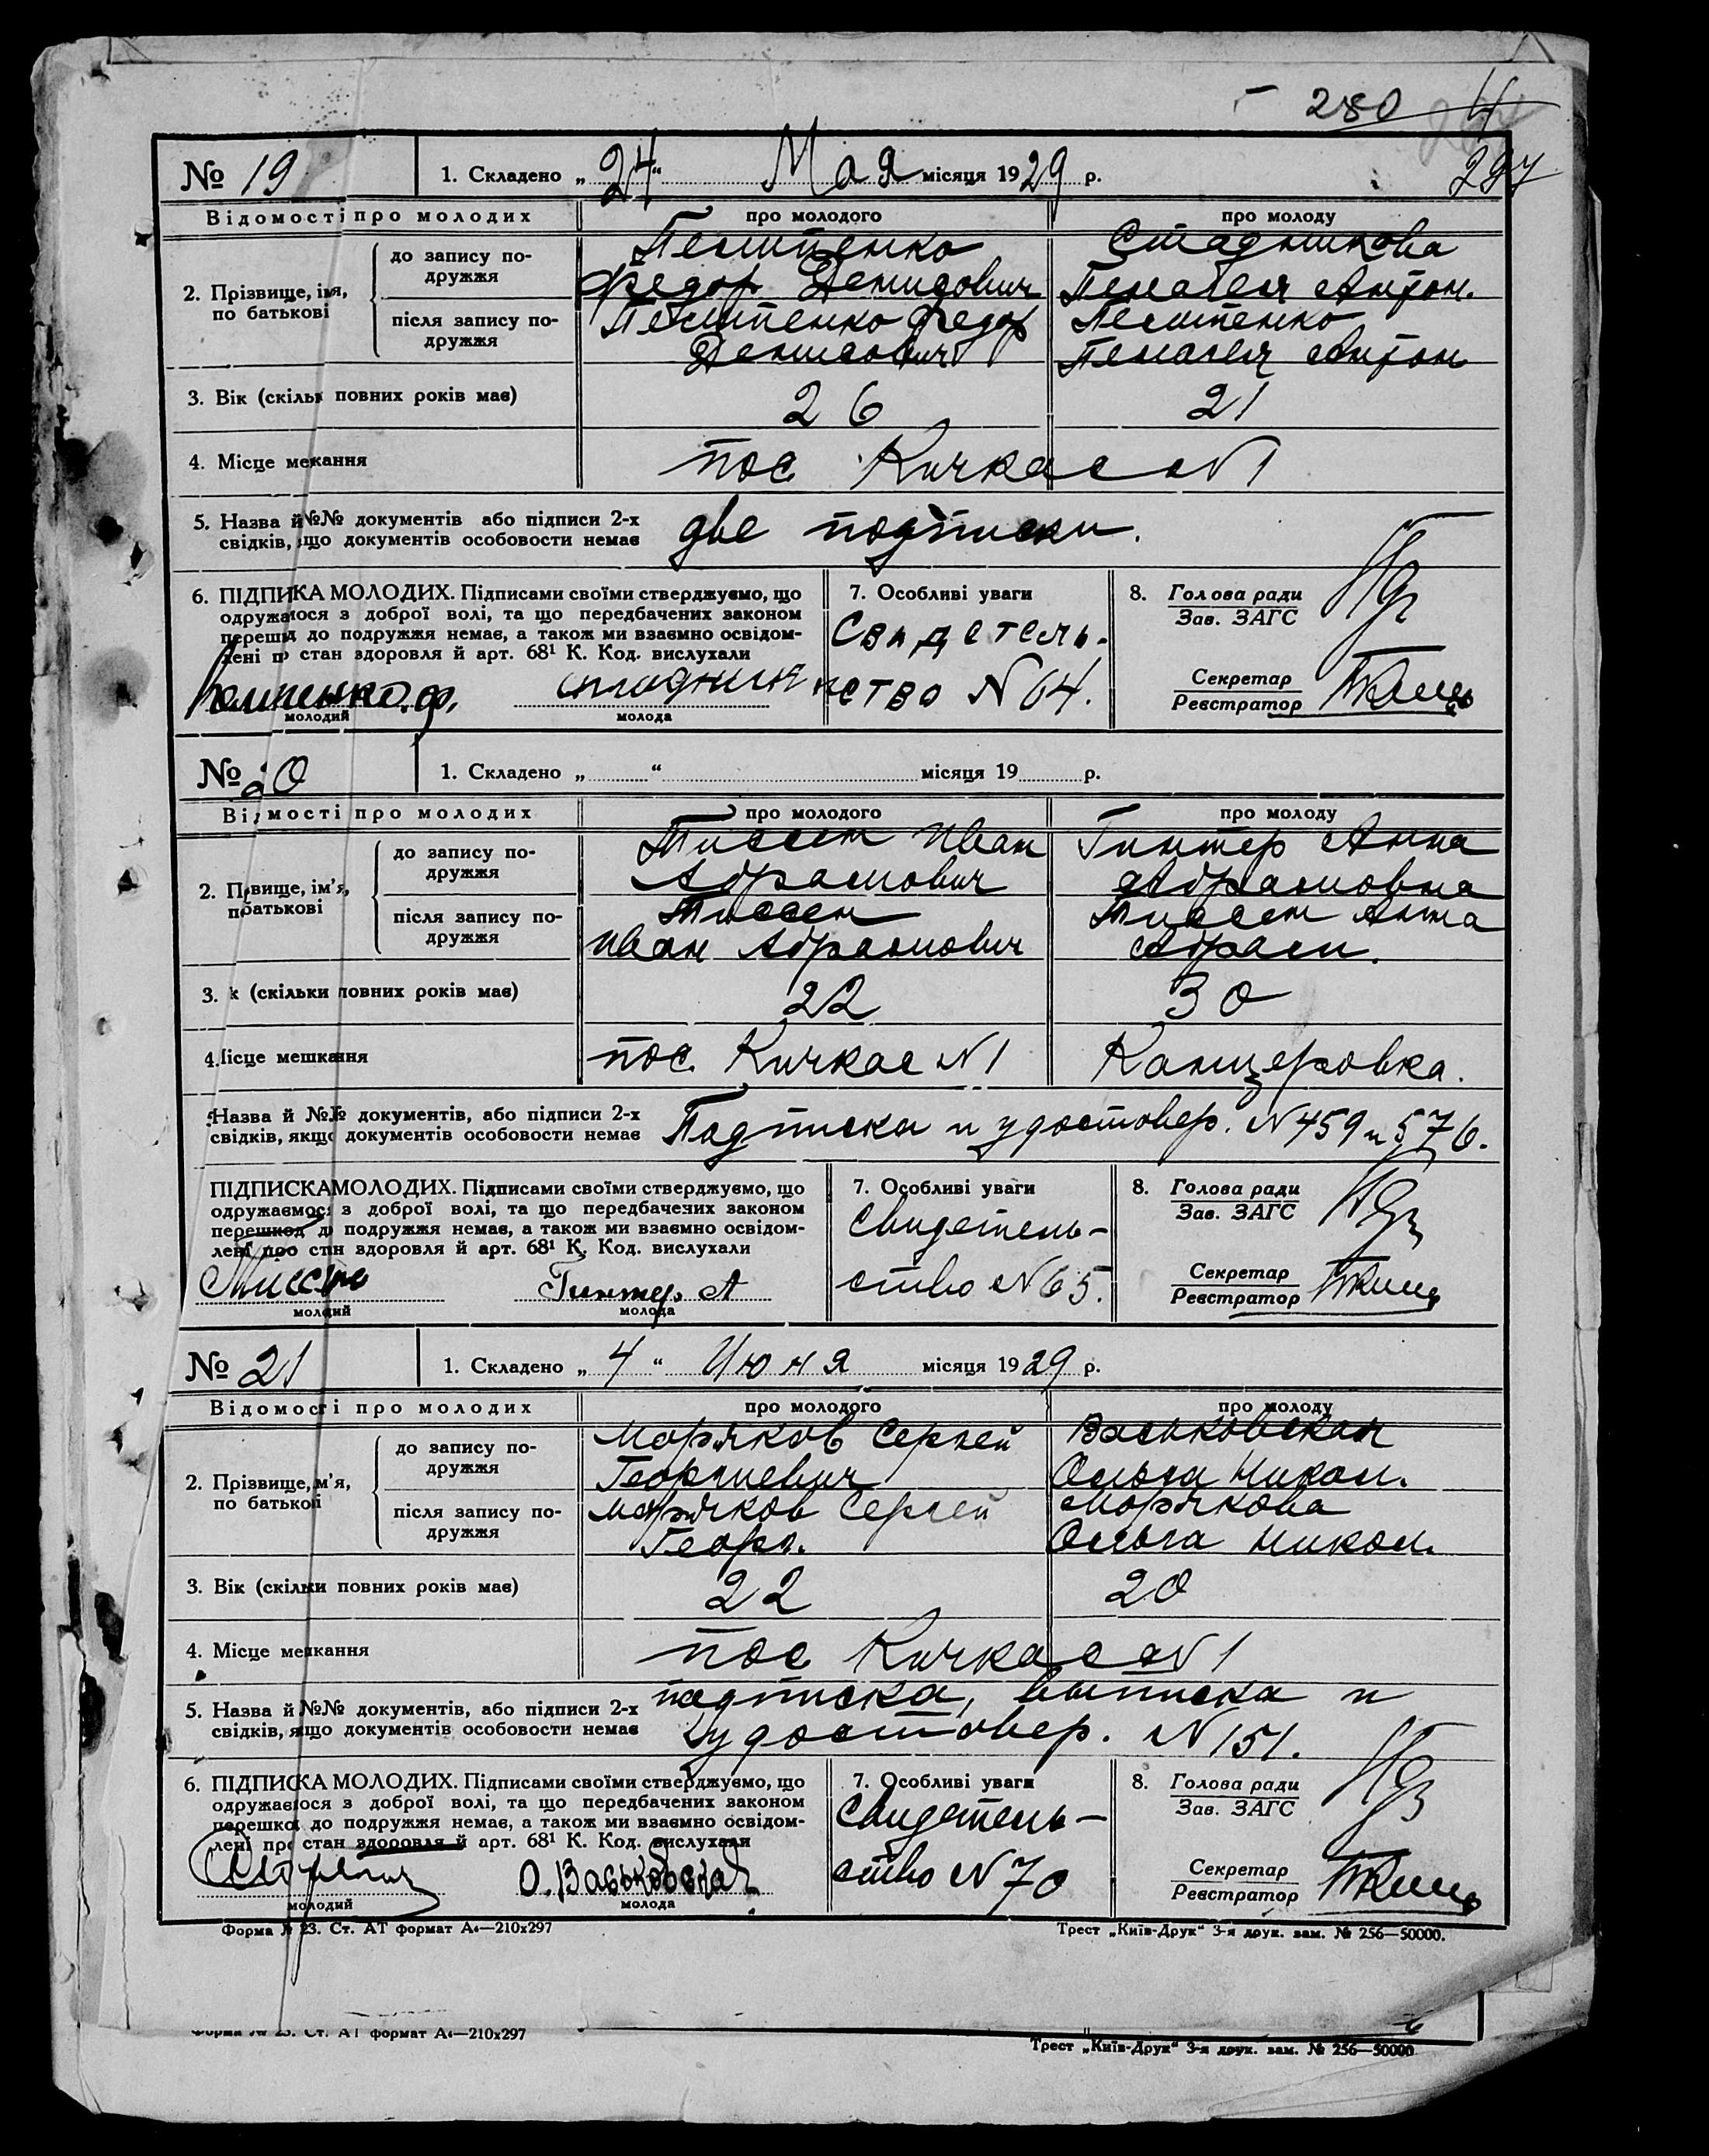 280
297
№ 19
1. Складено „24“ Мая місяця 1929 р.
Відомості про молодих
про молодого
про молоду
2. Прізвище, ім'я, по батькові
до запису по-
дружжя
Федор Демидович
Стадникова
Пелагея Антон.
після запису по-
дружжя
Федор
Демидович
Пелагея Антон
3. Вік (скільки повних років має)
26
21
4. Місце мешкання
пос Кичкас №1
5. Назва й №№ документів або підписи 2-х
свідків, якщо документів особовости немає
две подписки.
6. ПІДПИСКА МОЛОДИХ. Підписами своїми стверджуємо, що
одружаємося з доброї волі, та що передбачених законом
перешкод до подружжя немає, а також ми взаємно освідом-
лені про стан здоровля й арт. 68¹ К. Код. вислухали
молодий
молода
7. Особливі уваги
Свидетель-
ство №64.
8. Голова ради
Зав. ЗАГС
Секретар
Реєстратор
№ 20
1. Складено „ “ місяця 19 р.
Відомості про молодих
про молодого
про молоду
2. Прізвище, ім'я,
по батькові
до запису по-
дружжя
Тиссен Иван
Абрамович
Гинтер Анна
Абрамовна
після запису по-
дружжя
Тиссен
Иван Абрамович
Тиссен Анна
Абрам.
3. Вік (скільки повних років має)
22
30
4. Місце мешкання
пос. Кичкас №1
Канцеровка.
5. Назва й №№ документів, або підписи 2-х
свідків, якщо документів особовости немає
Подписка и удостовер. №459 и 576.
6. ПІДПИСКА МОЛОДИХ. Підписами своїми стверджуємо, що
одружаємося з доброї волі, та що передбачених законом
перешкод до подружжя немає, а також ми взаємно освідом-
лені про стан здоровля й арт. 68¹ К. Код. вислухали
Тиссен
молодий
Гинтер А
молода
7. Особливі уваги
Свидетель-
ство №65.
8. Голова ради
Зав. ЗАГС
Секретар
Реєстратор
№ 21
1. Складено „4“ Июня місяця 1929 р.
Відомості про молодих
про молодого
про молоду
2. Прізвище, ім'я,
по батькові
до запису по-
дружжя
Моряков Сергей
Георгиевич
Васьковская
Ольга Никол.
після запису по-
дружжя
Моряков Сергей
Георг.
Морякова
Ольга Никол.
3. Вік (скільки повних років має)
22
20
4. Місце мешкання
пос Кичкас №1
5. Назва й №№ документів, або підписи 2-х
свідків, якщо документів особовости немає
подписка, выписка и
удостовер. №151.
6. ПІДПИСКА МОЛОДИХ. Підписами своїми стверджуємо, що
одружаємося з доброї волі, та що передбачених законом
перешкод до подружжя немає, а також ми взаємно освідом-
лені про стан здоровля й арт. 68¹ К. Код. вислухали
молодий
О. Васьковская
молода
7. Особливі уваги
Свидетель-
ство №70
8. Голова ради
Зав. ЗАГС
Секретар
Реєстратор
Форма № 23. Ст. АТ формат А4—210х297
Трест „Київ-Друк“ 3-я друк. зам. № 256—50000.
Форма № 23. Ст. АТ формат А4—210х297
Трест „Київ-Друк“ 3-я друк. зам. № 256—50000